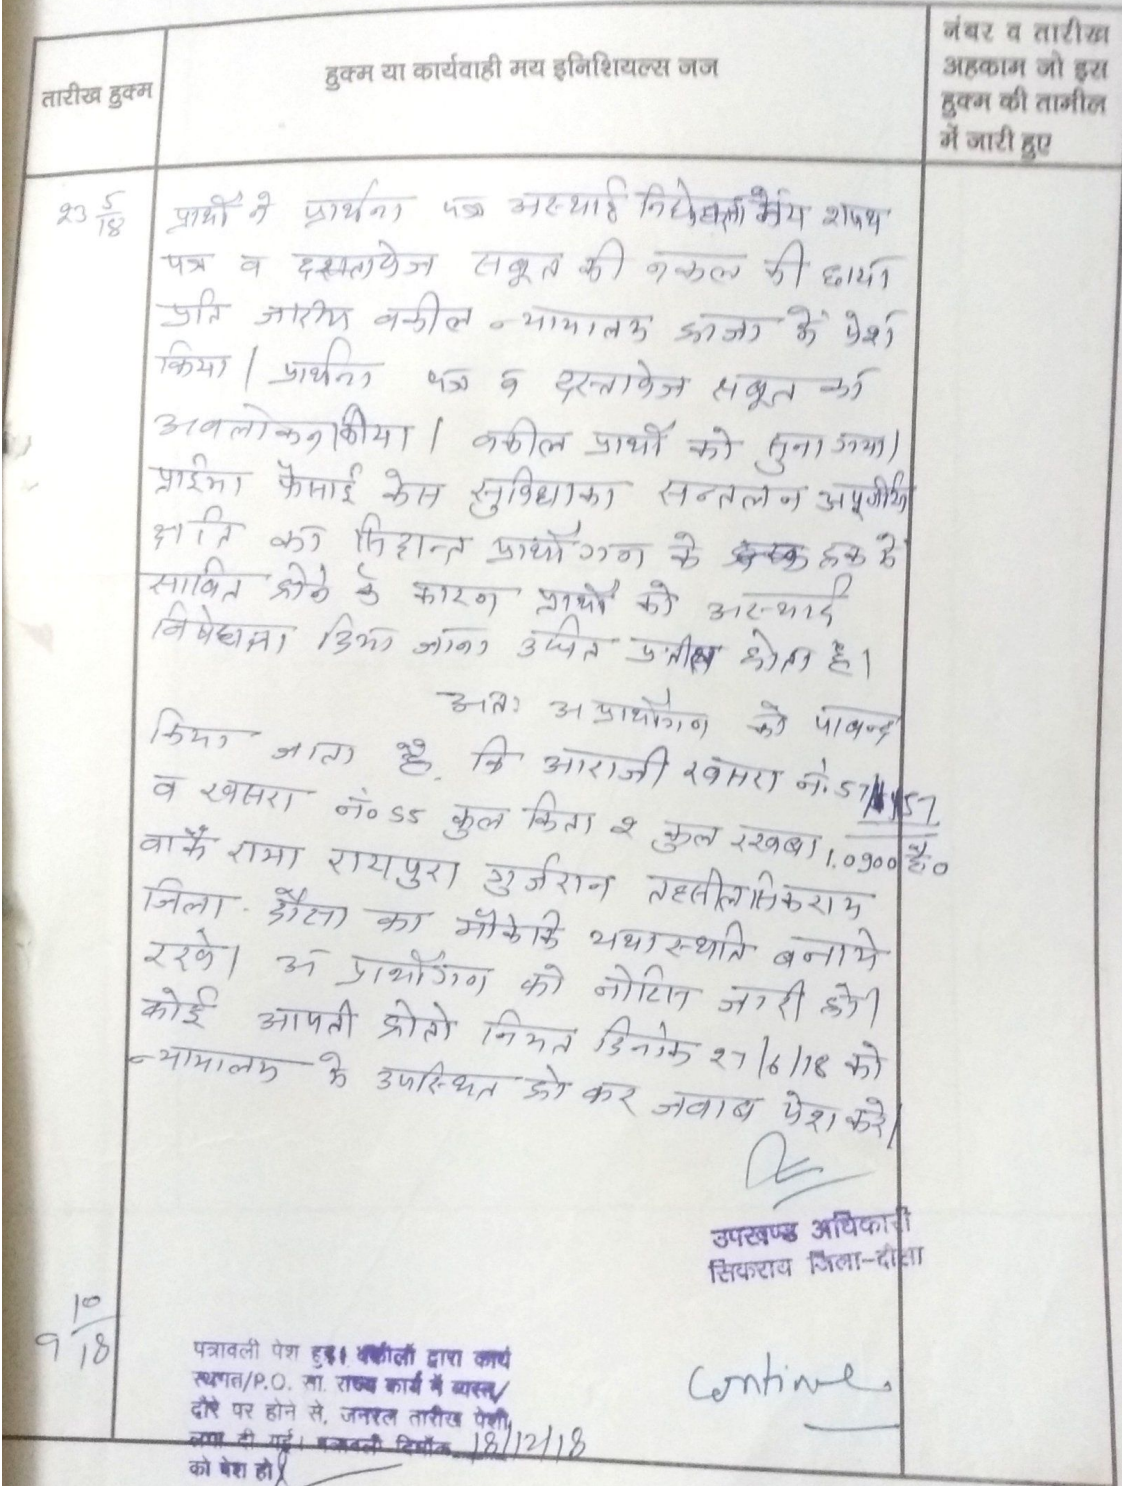 तारीख हुक्म
हुक्म या कार्यवाही मय इनिशियल्स जज
नंबर व तारीख
अहकाम जो इस
हुक्म की तामील
में जारी हुए
23 5/18
प्रार्थी ने प्रार्थना पत्र अस्थाई मय शपथ
पत्र व दस्तावेज सबूत की नकल की छाया
प्रति जरिये वकील न्यायालय हाजा में पेश
किया। प्रार्थना पत्र व दस्तावेज सबूत का
अवलोकन कीया। वकील प्रार्थी को सुना गया।
प्राईमा फैसाई केस सुविधा का सन्तलन
क्षति का सिद्दान्त प्रार्थीगण के हक में
साबित होने के कारण प्रार्थी को अस्थाई
निषेधाज्ञा दिया जाना उचित प्रतीत होता है।
अतः अप्रार्थीगण को पाबन्द
किया जाता है. कि आराजी खसरा नं. 57
व खसरा नं० 55 कुल किता 2 कुल रखबा 1.0900 है०
वाकै रामा रायपुरा गुर्जरान तहसील सिकराय
जिला- दौसा का मौके कि यथास्थति बनाये
रखे। अप्रार्थीगण को नोटिस जारी हो।
कोई आपती होतो नियत दिनांक 27/6/18 को
न्यायालय में उपस्थित हो कर जवाब पेश करे।
उपखण्ड अधिकारी
सिकराय जिला-दौसा
9 10/18
पत्रावली पेश हुई। वकीलों द्वारा कार्य
स्थगत/P.O. सा. राज्य कार्य में व्यस्त/
दौरे पर होने से, जनरल तारीख पेशी
लगा दी गई। पत्रावली दिनाँक 18/12/18
को पेश हो।
Continue